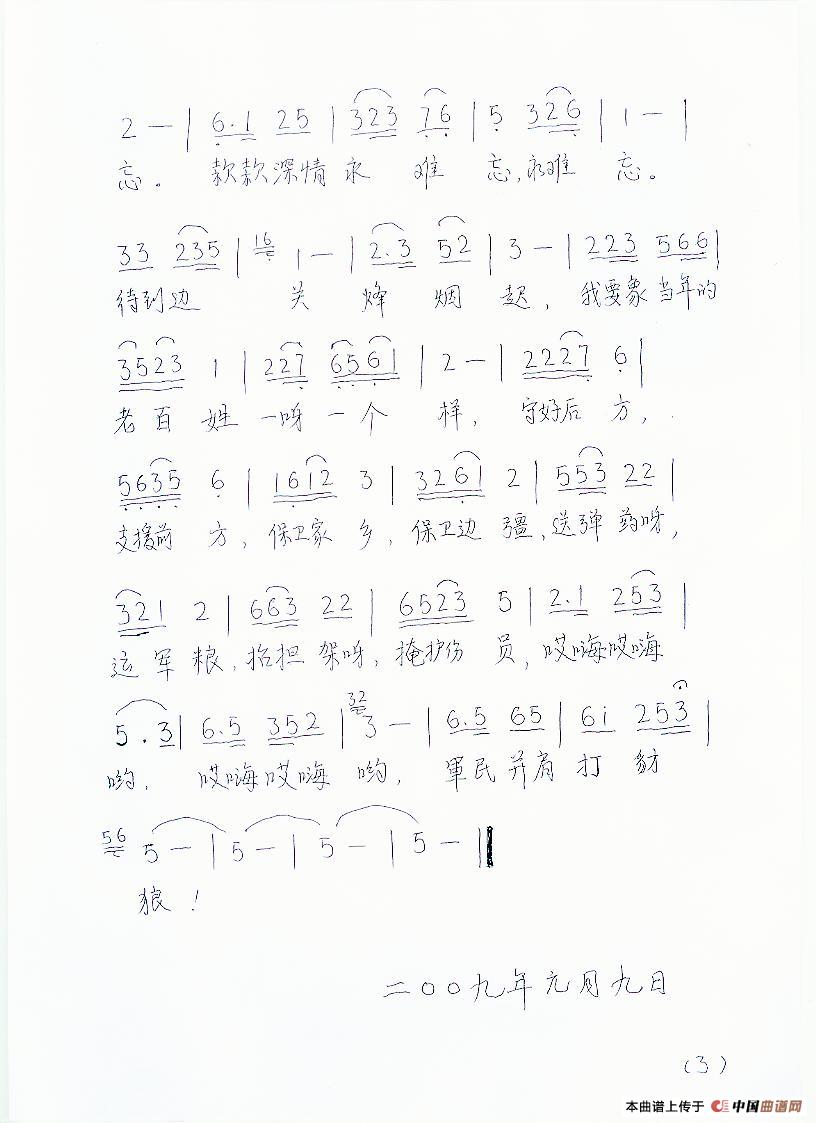 2 — | 6.1 25 | 323 76 | 5 326 | 1 — |
忘。 款款深情永 难 忘,永难 忘。
33 235 | 16 1 — | 2.3 52 | 3 — | 223 566 |
待到边 关 烽 烟 起, 我要象当年的
3523 1 | 227 6561 | 2 — | 2227 6 |
老百姓 一呀一个 样, 守好后 方,
5635 6 | 1612 3 | 3261 2 | 553 22 |
支援前 方, 保卫家 乡, 保卫边 疆,送弹 药呀,
321 2 | 663 22 | 6523 5 | 2.1 253 |
运军粮,抬担架呀,掩护伤 员,哎嗨哎嗨
5.3 | 6.5 352 | 32 3 — | 6.5 65 | 6i 253 |
哟, 哎嗨哎嗨 哟, 軍民并肩 打 豺
56 5 — | 5 — | 5 — | 5 — ‖
狼!
二〇〇九年元月九日
(3)
本曲谱上传于 中国曲谱网